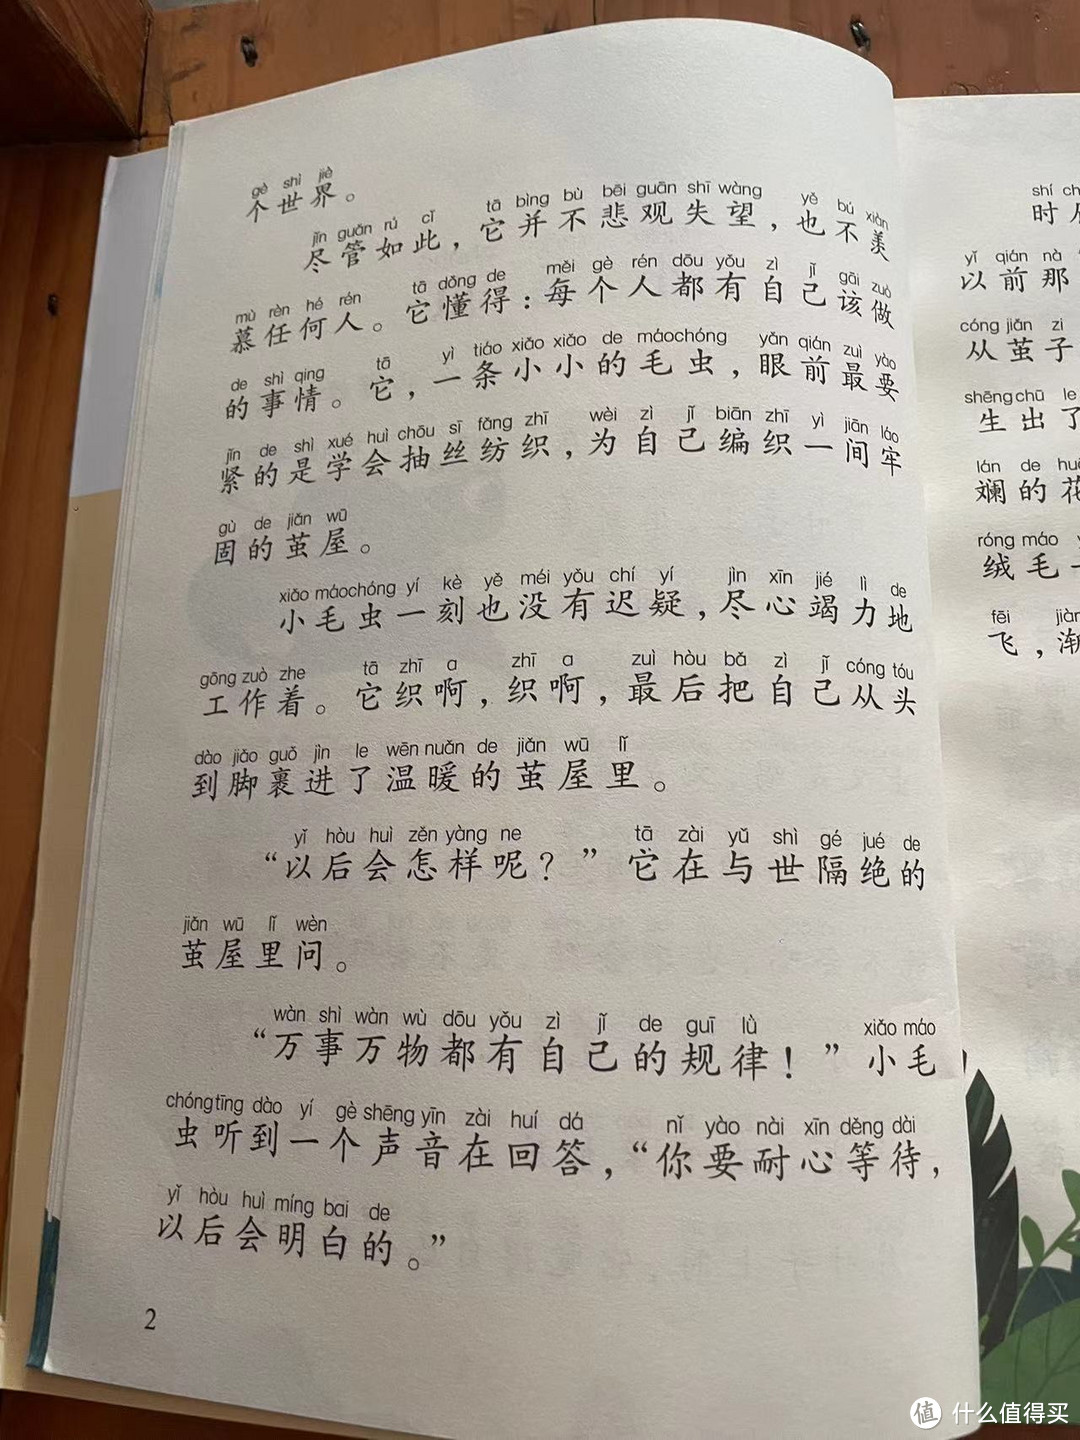 gè shì jiè
个世界。
jǐn guǎn rú cǐ tā bìng bù bēi guān shī wàng yě bú xiàn
尽管如此，它并不悲观失望，也不羡
mù rèn hé rén tā dǒng de měi gè rén dōu yǒu zì jǐ gāi zuò
慕任何人。它懂得：每个人都有自己该做
de shì qing tā yì tiáo xiǎo xiǎo de máochóng yǎn qián zuì yào
的事情。它，一条小小的毛虫，眼前最要
jǐn de shì xué huì chōu sī fǎng zhī wèi zì jǐ biān zhī yì jiān láo
紧的是学会抽丝纺织，为自己编织一间牢
gù de jiǎn wū
固的茧屋。
xiǎo máochóng yí kè yě méi yǒu chí yí jìn xīn jié lì de
小毛虫一刻也没有迟疑，尽心竭力地
gōng zuò zhe tā zhī a zhī a zuì hòu bǎ zì jǐ cóng tóu
工作着。它织啊，织啊，最后把自己从头
dào jiǎo guǒ jìn le wēn nuǎn de jiǎn wū lǐ
到脚裹进了温暖的茧屋里。
yǐ hòu huì zěn yàng ne tā zài yǔ shì gé jué de
“以后会怎样呢？”它在与世隔绝的
jiǎn wū lǐ wèn
茧屋里问。
wàn shì wàn wù dōu yǒu zì jǐ de guī lǜ xiǎo máo
“万事万物都有自己的规律！”小毛
chóng tīng dào yí gè shēng yīn zài huí dá nǐ yào nài xīn děng dài
虫听到一个声音在回答，“你要耐心等待，
yǐ hòu huì míng bai de
以后会明白的。”
2
shí
时
yǐ qián nà
以前那
cóng jiǎn zi
从茧子
shēng chū le
生出了
lán de
斓的花
róng máo
绒毛
fēi jiàn
飞，渐
值 什么值得买